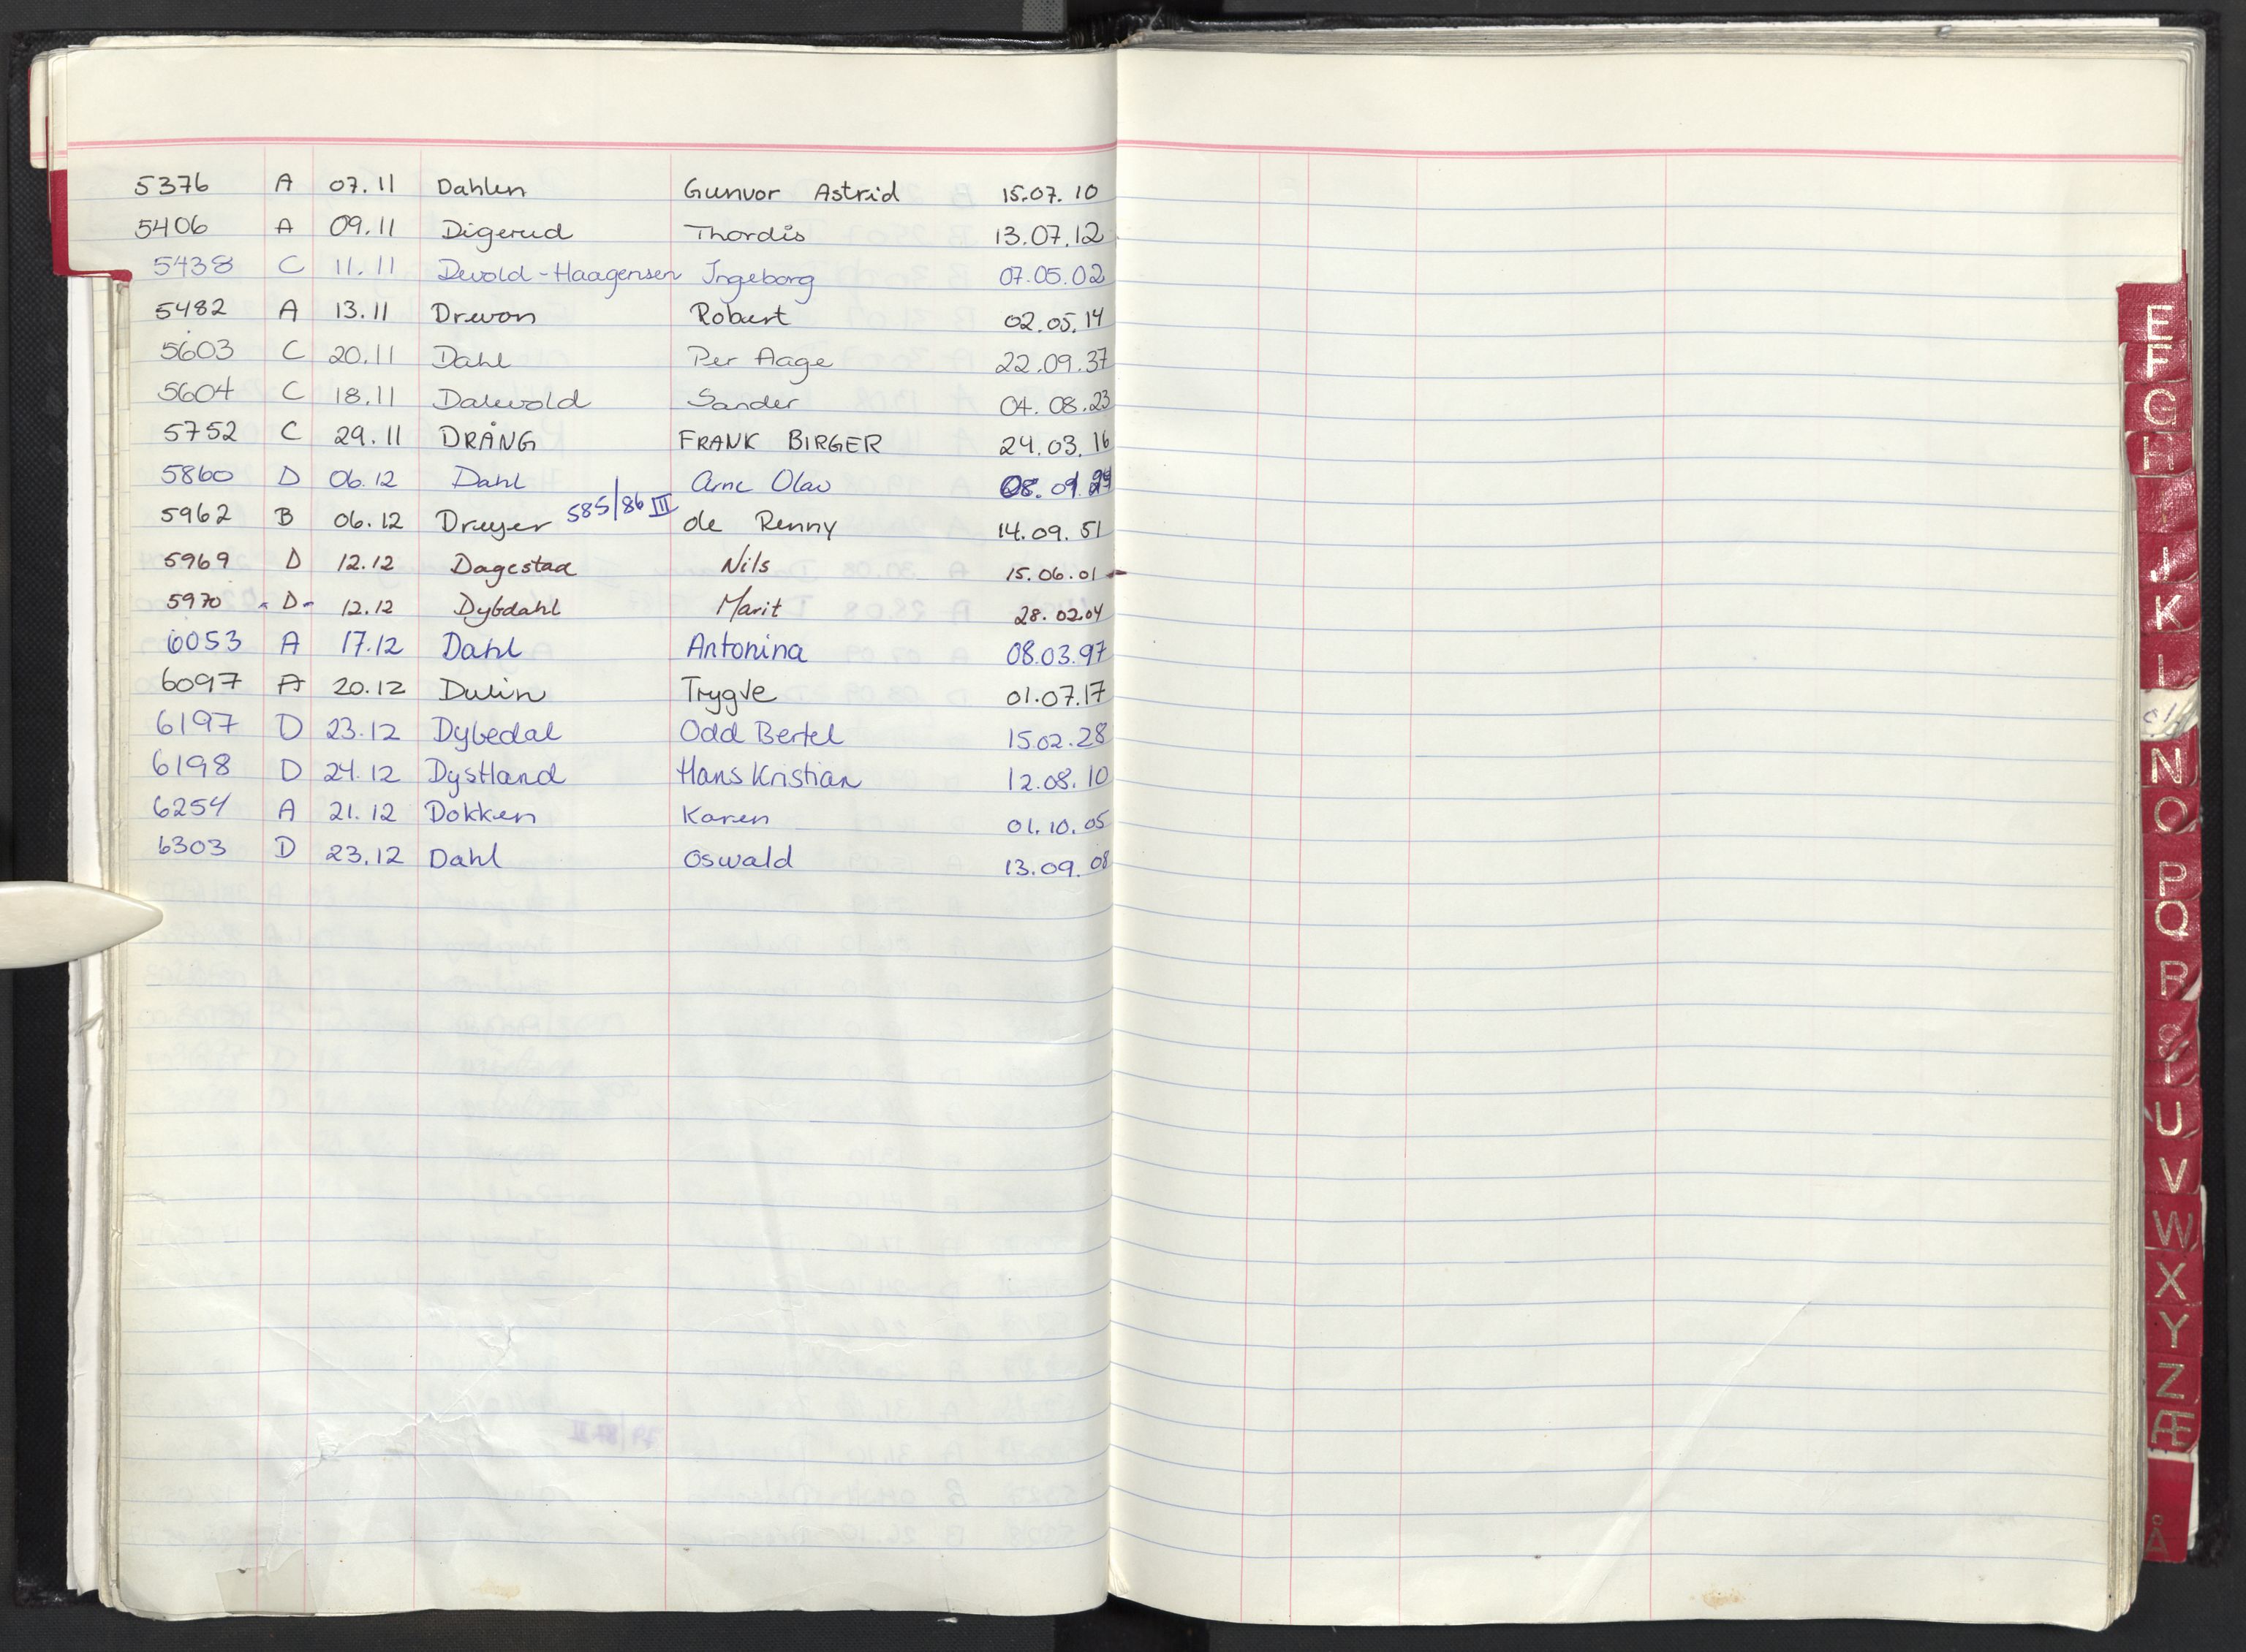 5376 A 07.11 Dahlen Gunvor Astrid 15.07.10
5406 A 09.11 Digerud Thordis 13.07.12
5438 C 11.11 Devold-Haagensen Ingeborg 07.05.02
5482 A 13.11 Drevon Robert 02.05.14
5603 C 20.11 Dahl Per Aage 22.09.37
5604 C 18.11 Dalevold Sander 04.08.23
5752 C 29.11 DRÅNG FRANK BIRGER 24.03.16
5860 D 06.12 Dahl Arne Olav 08.09.
585/86 III
5962 B 06.12 Dreyer de Renny 14.09.51
5969 D 12.12 Dagestad Nils 15.06.01
5970 D 12.12 Dybdahl Marit 28.02.04
6053 A 17.12 Dahl Antonina 08.03.97
6097 A 20.12 Dulin Trygve 01.07.17
6197 D 23.12 Dybedal Odd Bertel 15.02.28
6198 D 24.12 Dystland Hans Kristian 12.08.10
6254 A 21.12 Dokken Karen 01.10.05
6303 D 23.12 Dahl Oswald 13.09.08
E
F
G
H
I
J
K
L
N
O
P
Q
R
S
T
U
V
W
X
Y
Z
Æ
Å